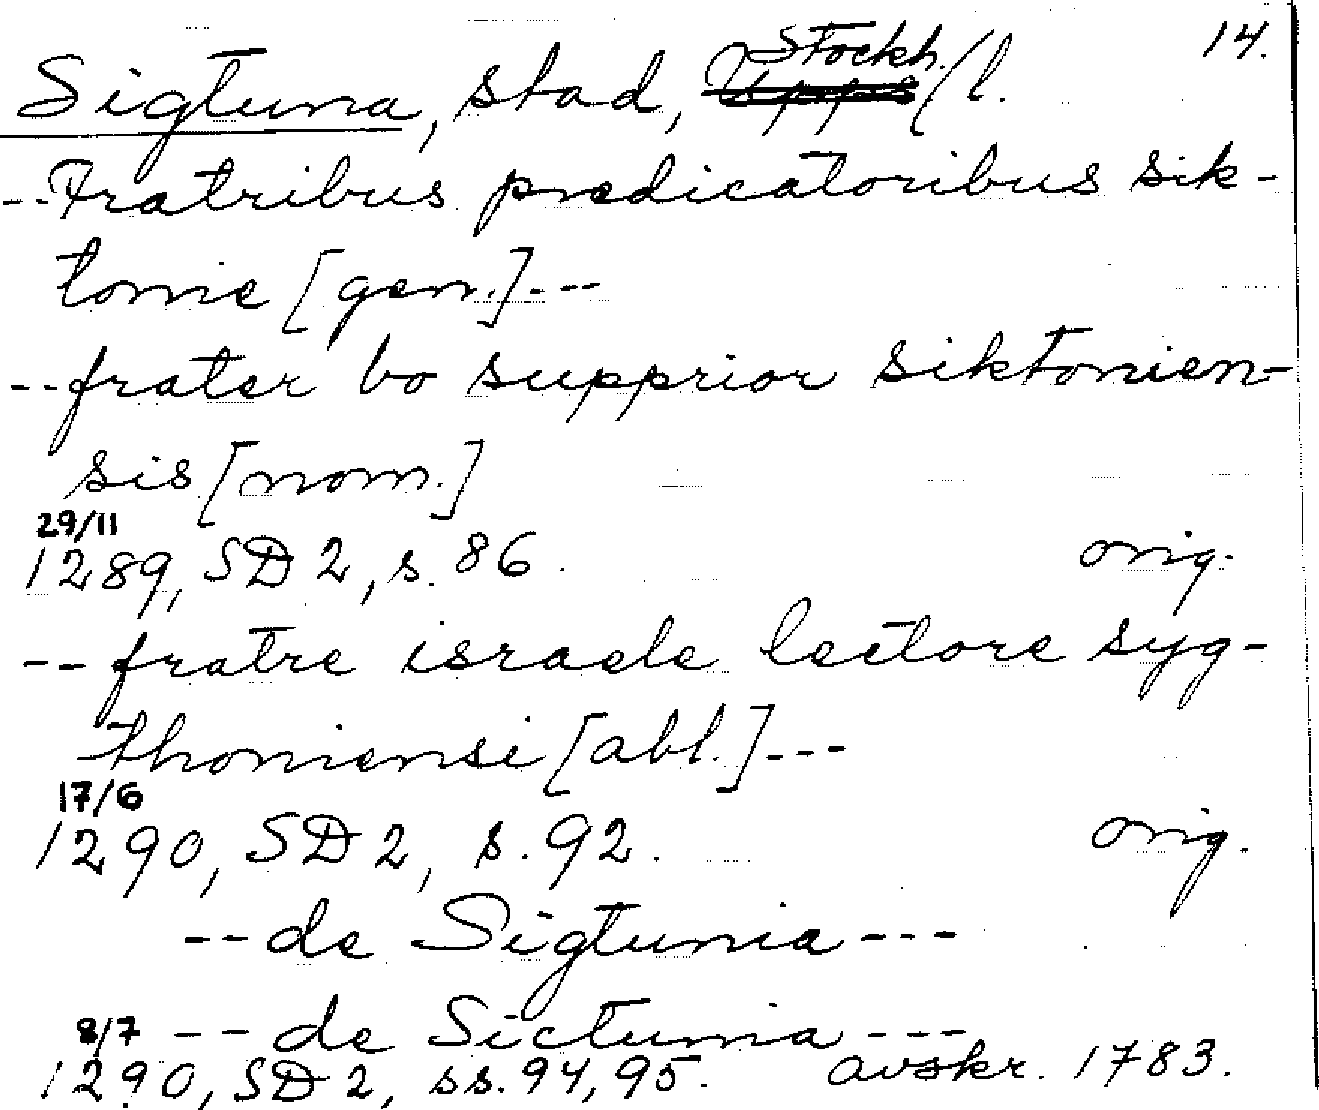 14.
Sigtuna, stad, Stockh./l.
--Fratribus predicatoribus sik-
tonie [gen.]---
--frater bo supprior siktonien-
sis [nom.]
29/11
1289, SD 2, s. 86. orig.
--fratre israele lectore syg-
thoniensi [abl.]---
17/6
1290, SD 2, s. 92. orig.
--de Sigtunia---
8/7 --de Sictunia---
1290, SD 2, ss. 94, 95. avskr. 1783.